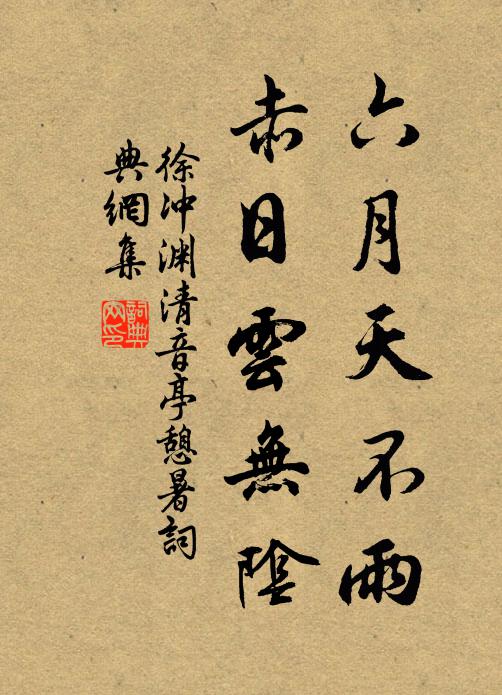 六月天不雨
赤日雲無陰
徐沖淵清音亭憩暑詞
典網集
詞典
網印